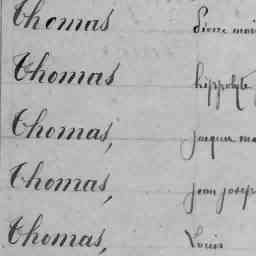 Thomas Pierre mari
Thomas hippolyte
Thomas, jacques ma
Thomas, jean josep
Thomas, Louis